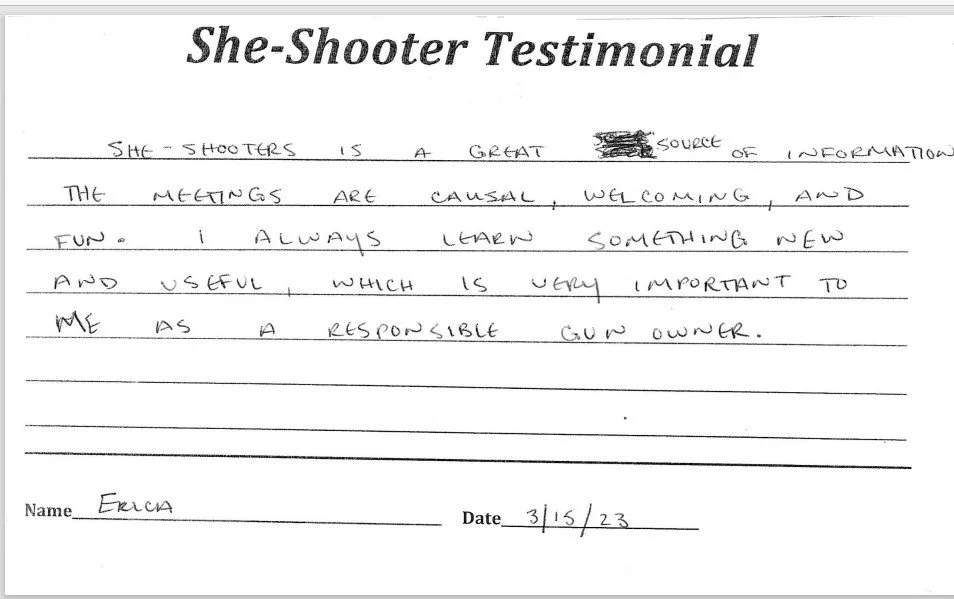 She-Shooter Testimonial
SHE-SHOOTERS IS A GREAT SOURCE OF INFORMATION
THE MEETINGS ARE CAUSAL, WELCOMING, AND
FUN. I ALWAYS LEARN SOMETHING NEW
AND USEFUL, WHICH IS VERY IMPORTANT TO
ME AS A RESPONSIBLE GUN OWNER.
Name ERICA
Date 3/15/23